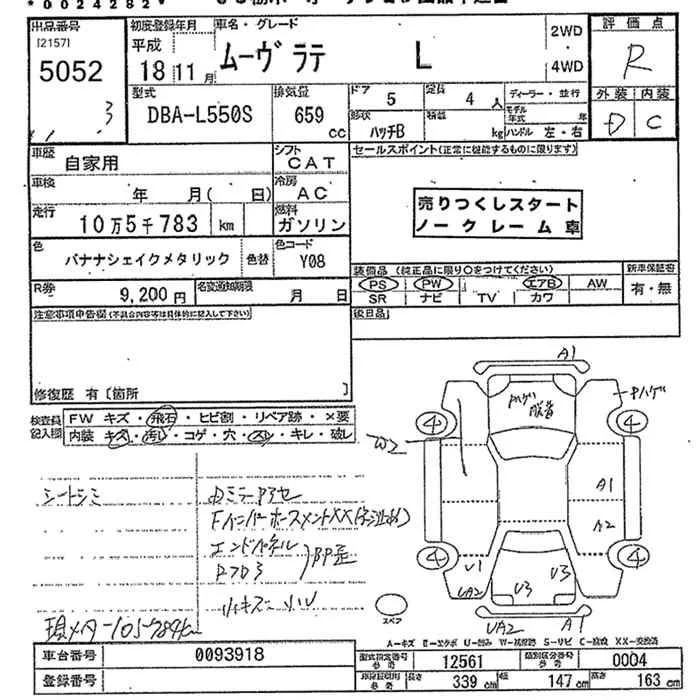 *0024282*
出品番号 初度登録年月 車名・グレード 評価点
[2157] 平成 2WD
5052 18 11 月 ムーヴ ラテ L ・ R
4WD
型式 排気量 ドア 5 定員 4 人 ディーラー・並行 外装 内装
3 DBA-L550S 659 形状 積載 モデル年式 年 D C
cc ハッチB kg ハンドル 左・右
車歴 自家用 シフト CAT セールスポイント(正常に機能するものに限ります)
車検 年 月( 日) 冷房 AC
走行 10万5千783 km 燃料 ガソリン
売りつくしスタート
ノークレーム車
色 バナナシェイクメタリック 色替 色コード Y08
装備品 (純正品に限り○をつけてください) 新車保証書
R券 9,200 円 名変通知期限 月 日
PS PW エアB AW 有・無
SR ナビ TV カワ
注意事項申告欄(不具合内容等は具体的に記入して下さい) 後日品
修復歴 有〔箇所 〕
検査員記入欄 FW キズ・飛石・ヒビ割・リペア跡・×要
内装 キズ・汚レ・コゲ・穴・スレ・キレ・破レ
A1
ハゲ
④ ④
W2
A1
A2
シートシミ
エンドパネル
④ ④
U1 U3 U3
UA2
スペア
UA2 A1
現メーター105784km
A-キズ E-エクボ U-凹み W-補修跡 S-サビ C-腐蝕 XX-交換済
車台番号 0093918 型式指定番号 参考 12561 類別区分番号 参考 0004
登録番号 長さ 339 cm 幅 147 cm 高さ 163 cm